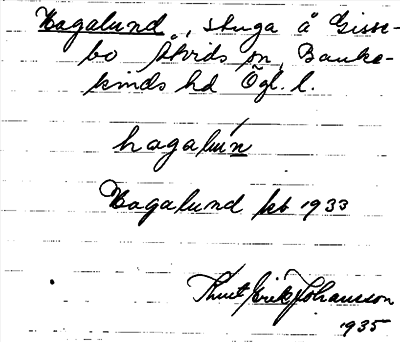 Hagalund, stuga å Gisse-
bo Åtvids sn, Banke-
kinds hd Ögl. l.
hagalún
Hagalund kb 1933
Knut Erik Johansson
1935